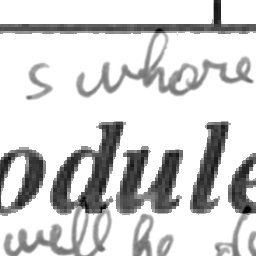 s whore
odule
well be